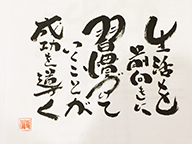 生活を
前向きに
習慣づけて
いくことが
成功を導く